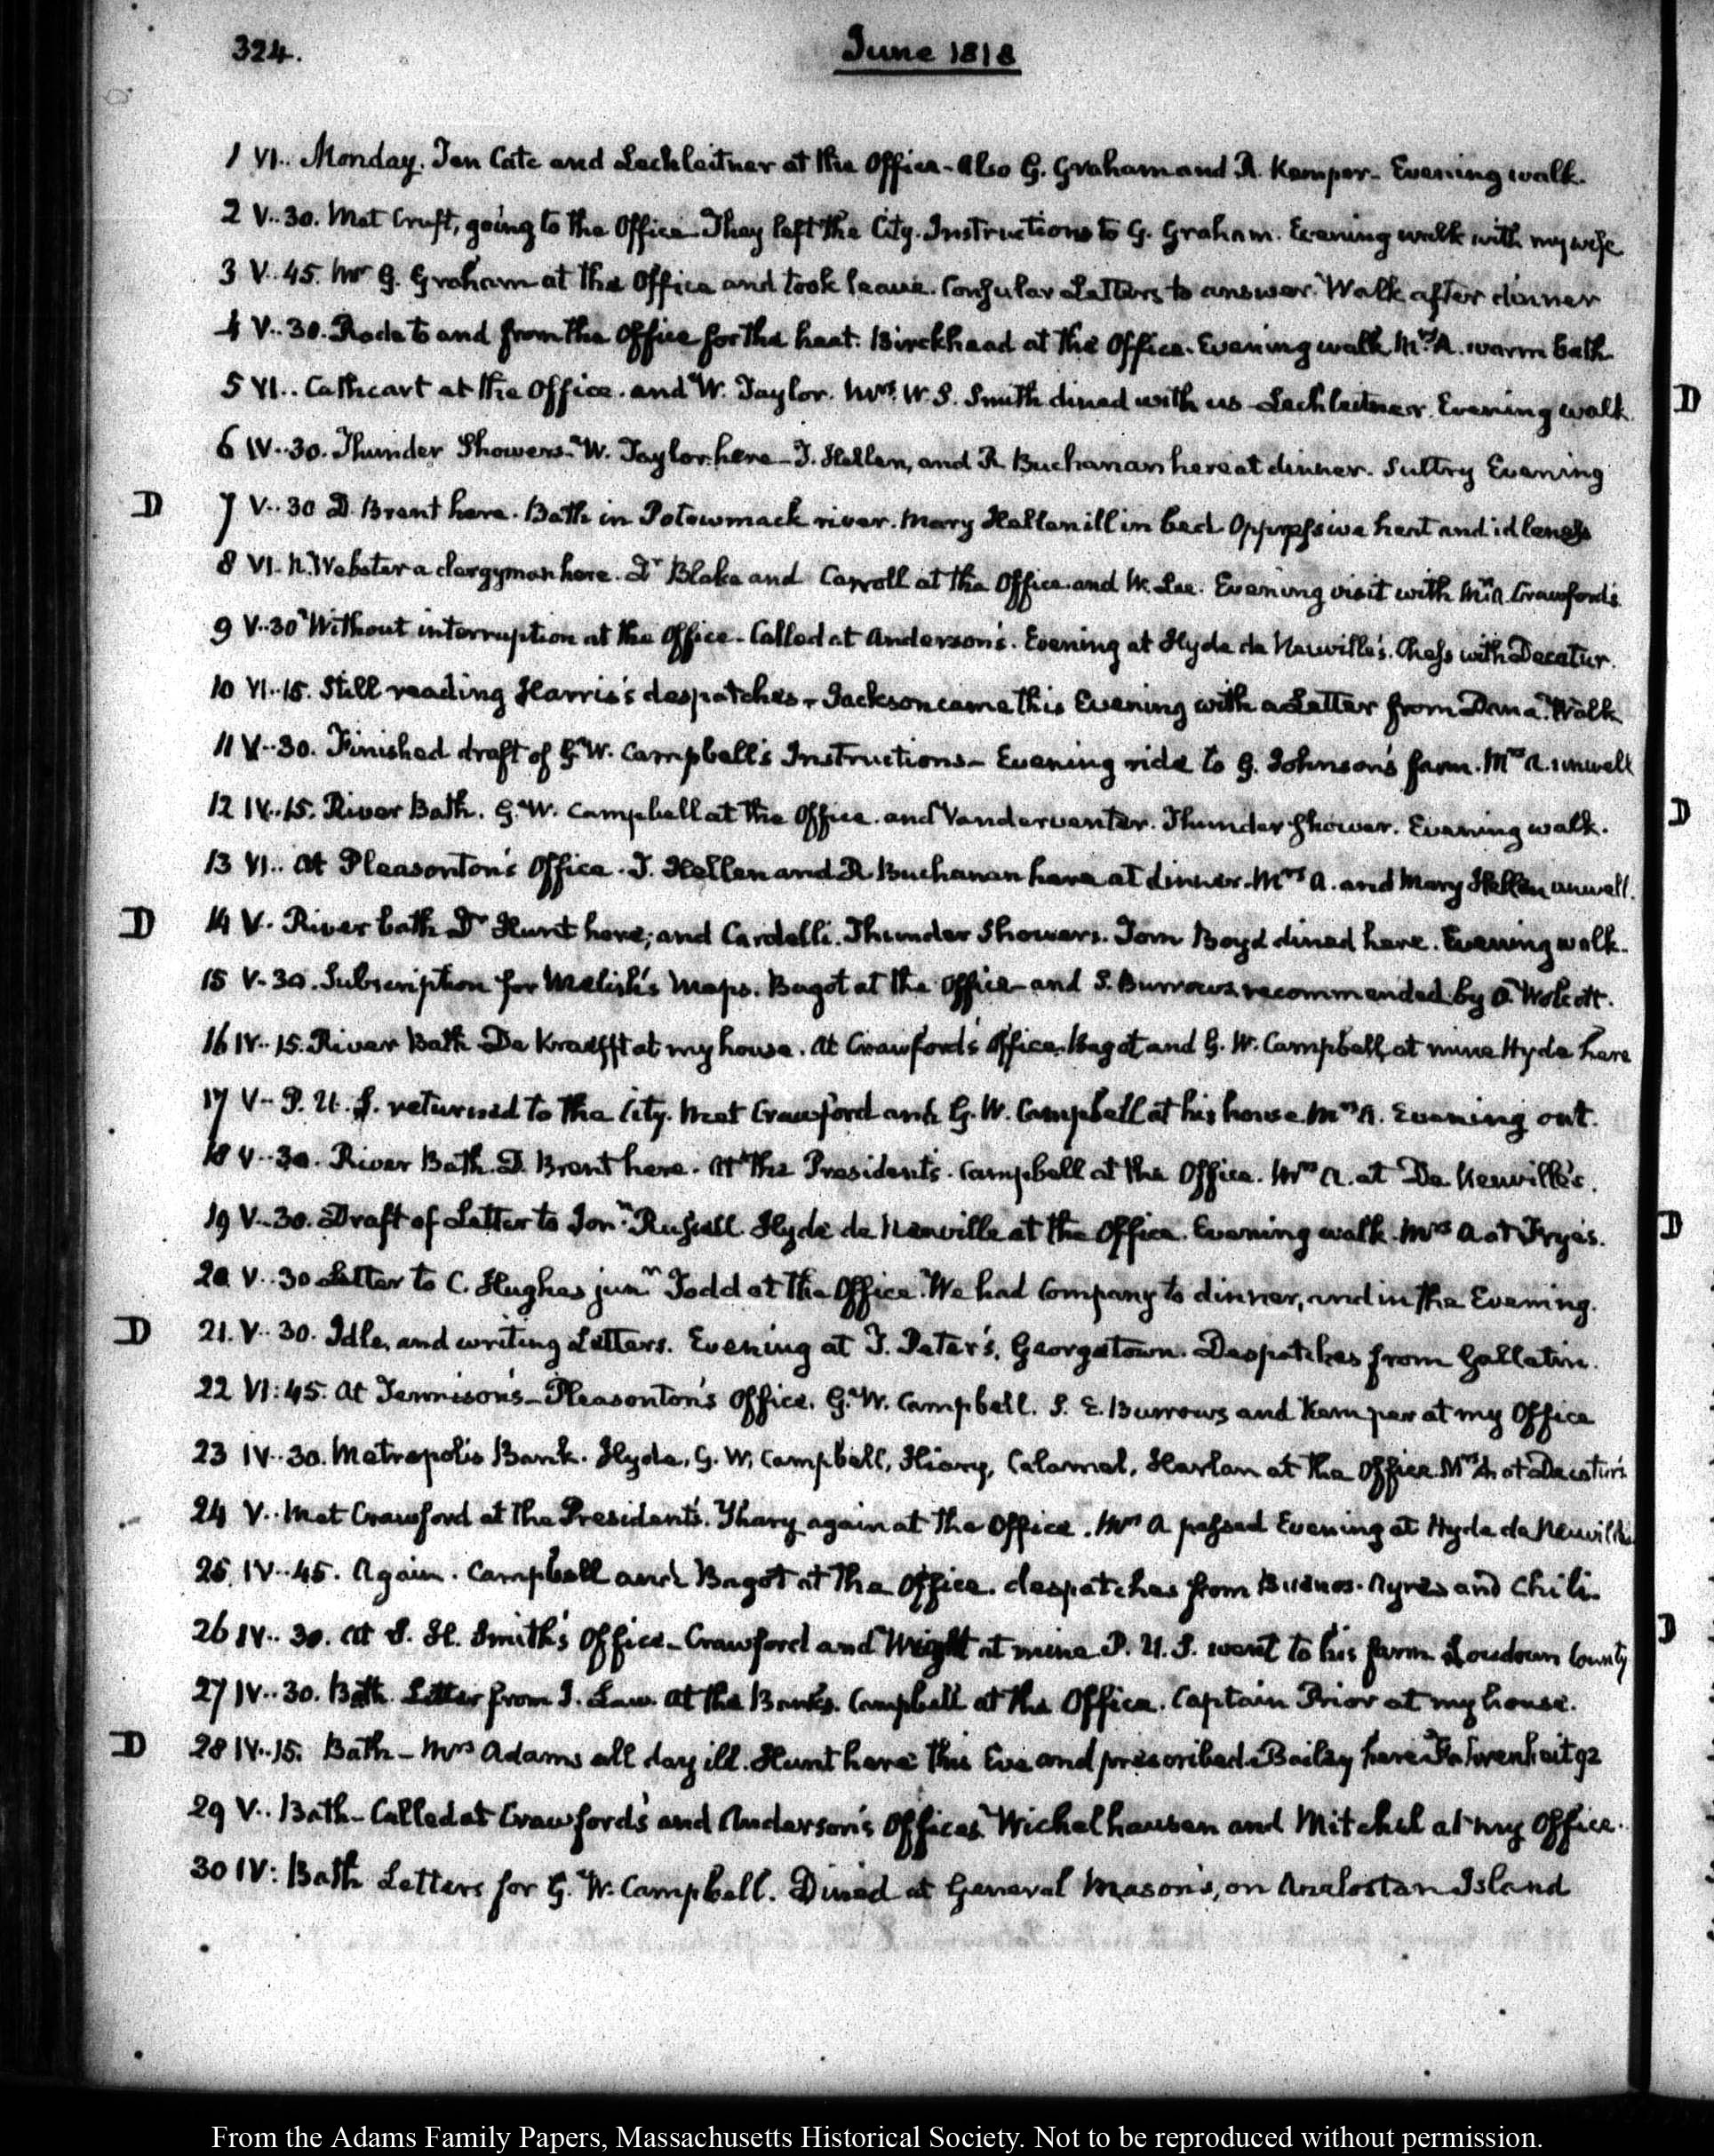 324.
June 1818
1 VI.. Monday. Ten Cate and Lechleitner at the Office. Also G. Graham and R. Kemper. Evening walk.
2 V..30. Met Cruft, going to the Office. They left the City. Instructions to G. Graham. Evening walk with my wife
3 V..45. Mr G. Graham at the Office and took leave. Consular Letters to answer. Walk after dinner
4 V..30. Rode to and from the Office for the heat. Birckhead at the Office. Evening walk. Mrs A. warm bath.
5 VI.. Cathcart at the Office. and W. Taylor. Mrs W. S. Smith dined with us. Lechleitner. Evening walk.
D
6 IV..30. Thunder Showers. W. Taylor here. J. Hellen, and R Buchanan here at dinner. Sultry Evening
D 7 V..30 D. Brent here. Bath in Potowmack river. Mary Hellen ill in bed. Oppressive heat and idleness
8 VI. N. Webster a clergyman here. Dr Blake and Carroll at the Office. and W. Lee. Evening visit with Mrs A. Crawford's.
9 V..30 Without interruption at the Office. Called at Anderson's. Evening at Hyde de Neuville's. Chess with Decatur.
10 VI..15. Still reading Harris's despatches. Jackson came this Evening with a Letter from Dana. Walk
11 V..30. Finished draft of G. W. Campbell's Instructions. Evening ride to G. Johnson's farm. Mrs A. unwell
12 IV..15. River Bath. G. W. Campbell at the Office. and Vandeventer. Thunder Shower. Evening walk.
D
13 VI.. At Pleasonton's Office. J. Hellen and R Buchanan here at dinner. Mrs A. and Mary Hellen unwell.
D 14 V. River bath Dr Hunt here; and Cardelli. Thunder Showers. Tom Boyd dined here. Evening walk.
15 V.30. Subscription for Melish's Maps. Bagot at the Office. and S. Burrows recommended by O. Wolcott.
16 IV..15. River Bath. De Kraefft at my house. At Crawford's Office. Bagot and G. W. Campbell, at mine. Hyde here
17 V.. P. U. S. returned to the City. Met Crawford and G. W. Campbell at his house. Mrs A. Evening out.
18 V..30. River Bath. D. Brent here. At the President's. Campbell at the Office. Mrs A. at De Neuville's.
19 V..30. Draft of Letter to Jonn. Russell. Hyde de Neuville at the Office. Evening walk. Mrs A at Frye's.
D
20 V..30 Letter to C. Hughes junr Todd at the Office. We had Company to dinner, and in the Evening.
D 21. V..30. Idle, and writing Letters. Evening at T. Peter's, Georgetown. Despatches from Gallatin.
22 VI:45. At Tennison's. Pleasonton's Office. G. W. Campbell. S. E. Burrows and Kemper at my Office
23 IV..30. Metropolis Bank. Hyde, G. W. Campbell, Calamel, Harlan at the Office. Mrs A at Decatur's
24 V.. Met Crawford at the President's. again at the Office. Mrs A passed Evening at Hyde de Neuville's
25. IV..45. Again. Campbell and Bagot at the Office. despatches from Buenos-Ayres and Chili.
26 IV..30. At S. H. Smith's Office. Crawford and Wright at mine. P. U. S. went to his farm Loudoun County
D
27 IV..30. Bath. Letter from T. Law. At the Banks. Campbell at the Office. Captain Prior at my house.
D 28 IV..15. Bath. Mrs Adams all day ill. Hunt here this Eve and prescribed. Bailey here Fahrenheit 92
29 V.. Bath. Called at Crawford's and Anderson's Offices. Wichelhausen and Mitchel at my Office.
30 IV: Bath Letters for G. W. Campbell. Dined at General Mason's, on Analostan Island
From the Adams Family Papers, Massachusetts Historical Society. Not to be reproduced without permission.